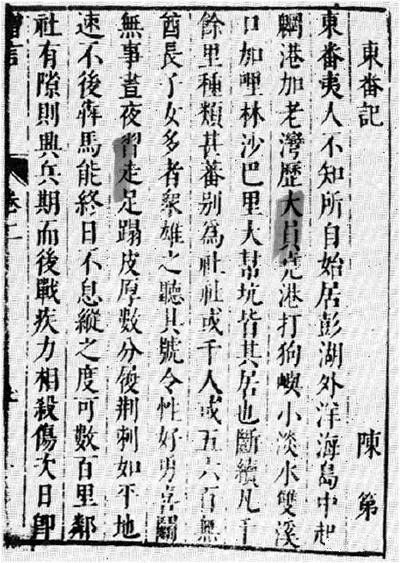 東番記 陳第
東番夷人不知所自始居彭湖外洋海島中起
魍港加老灣歷大員堯港打狗嶼小淡水雙溪
口加哩林沙巴里大幫坑皆其居也斷續凡千
餘里種類甚蕃別為社社或千人或五六百無
酋長子女多者眾雄之聽其號令性好勇喜鬭
無事晝夜習走足蹋皮厚數分履荆刺如平地
速不後犇馬能終日不息縱之度可數百里鄰
社有隙則興兵期而後戰疾力相殺傷次日即
卷二